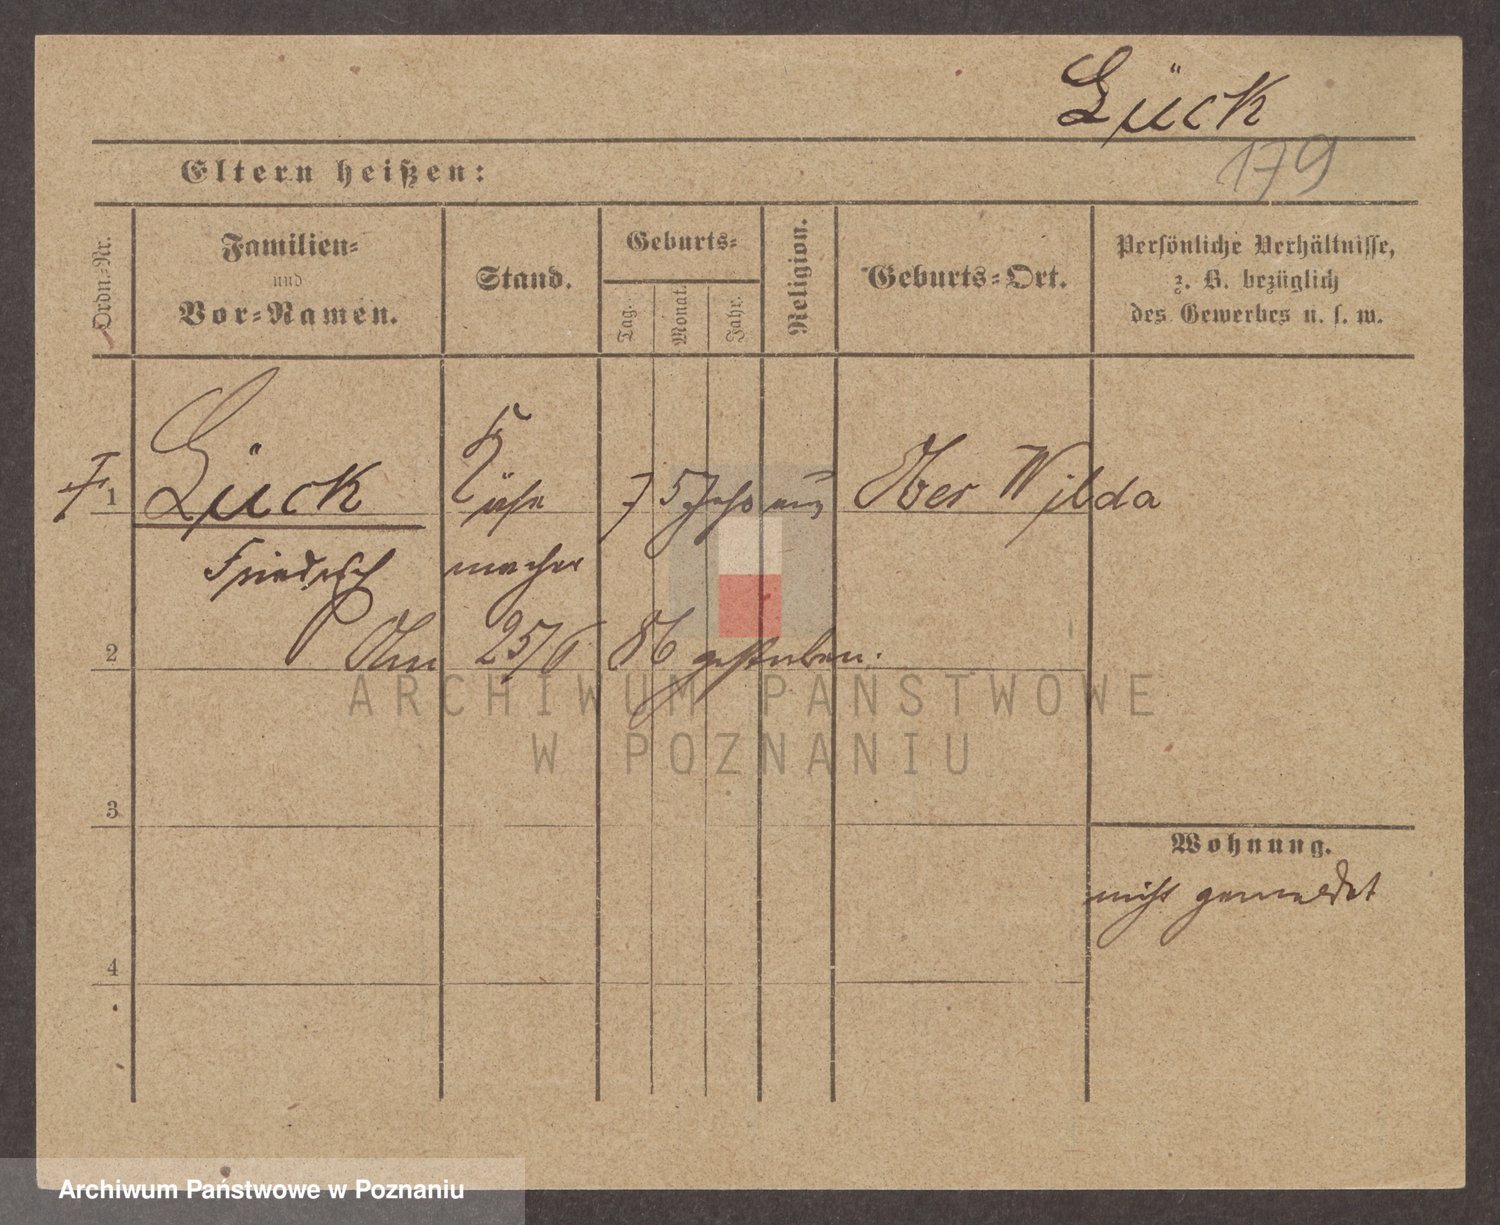 Lück
179
Eltern heißen:
Ordn.-Nr.
Familien-
und
Vor-Namen.
Stand.
Geburts-
Tag.
Monat.
Jahr.
Religion.
Geburts-Ort.
Persönliche Verhältnisse,
z. B. bezüglich
des Gewerbes u. s. w.
1 Lück Käse 75 Jahr aus Ober Wilda
Friedrich macher
2 Am 25/6 86 gestorben.
ARCHIWUM PAŃSTWOWE
W POZNANIU
3
Wohnung.
nicht gemeldet
4
Archiwum Państwowe w Poznaniu